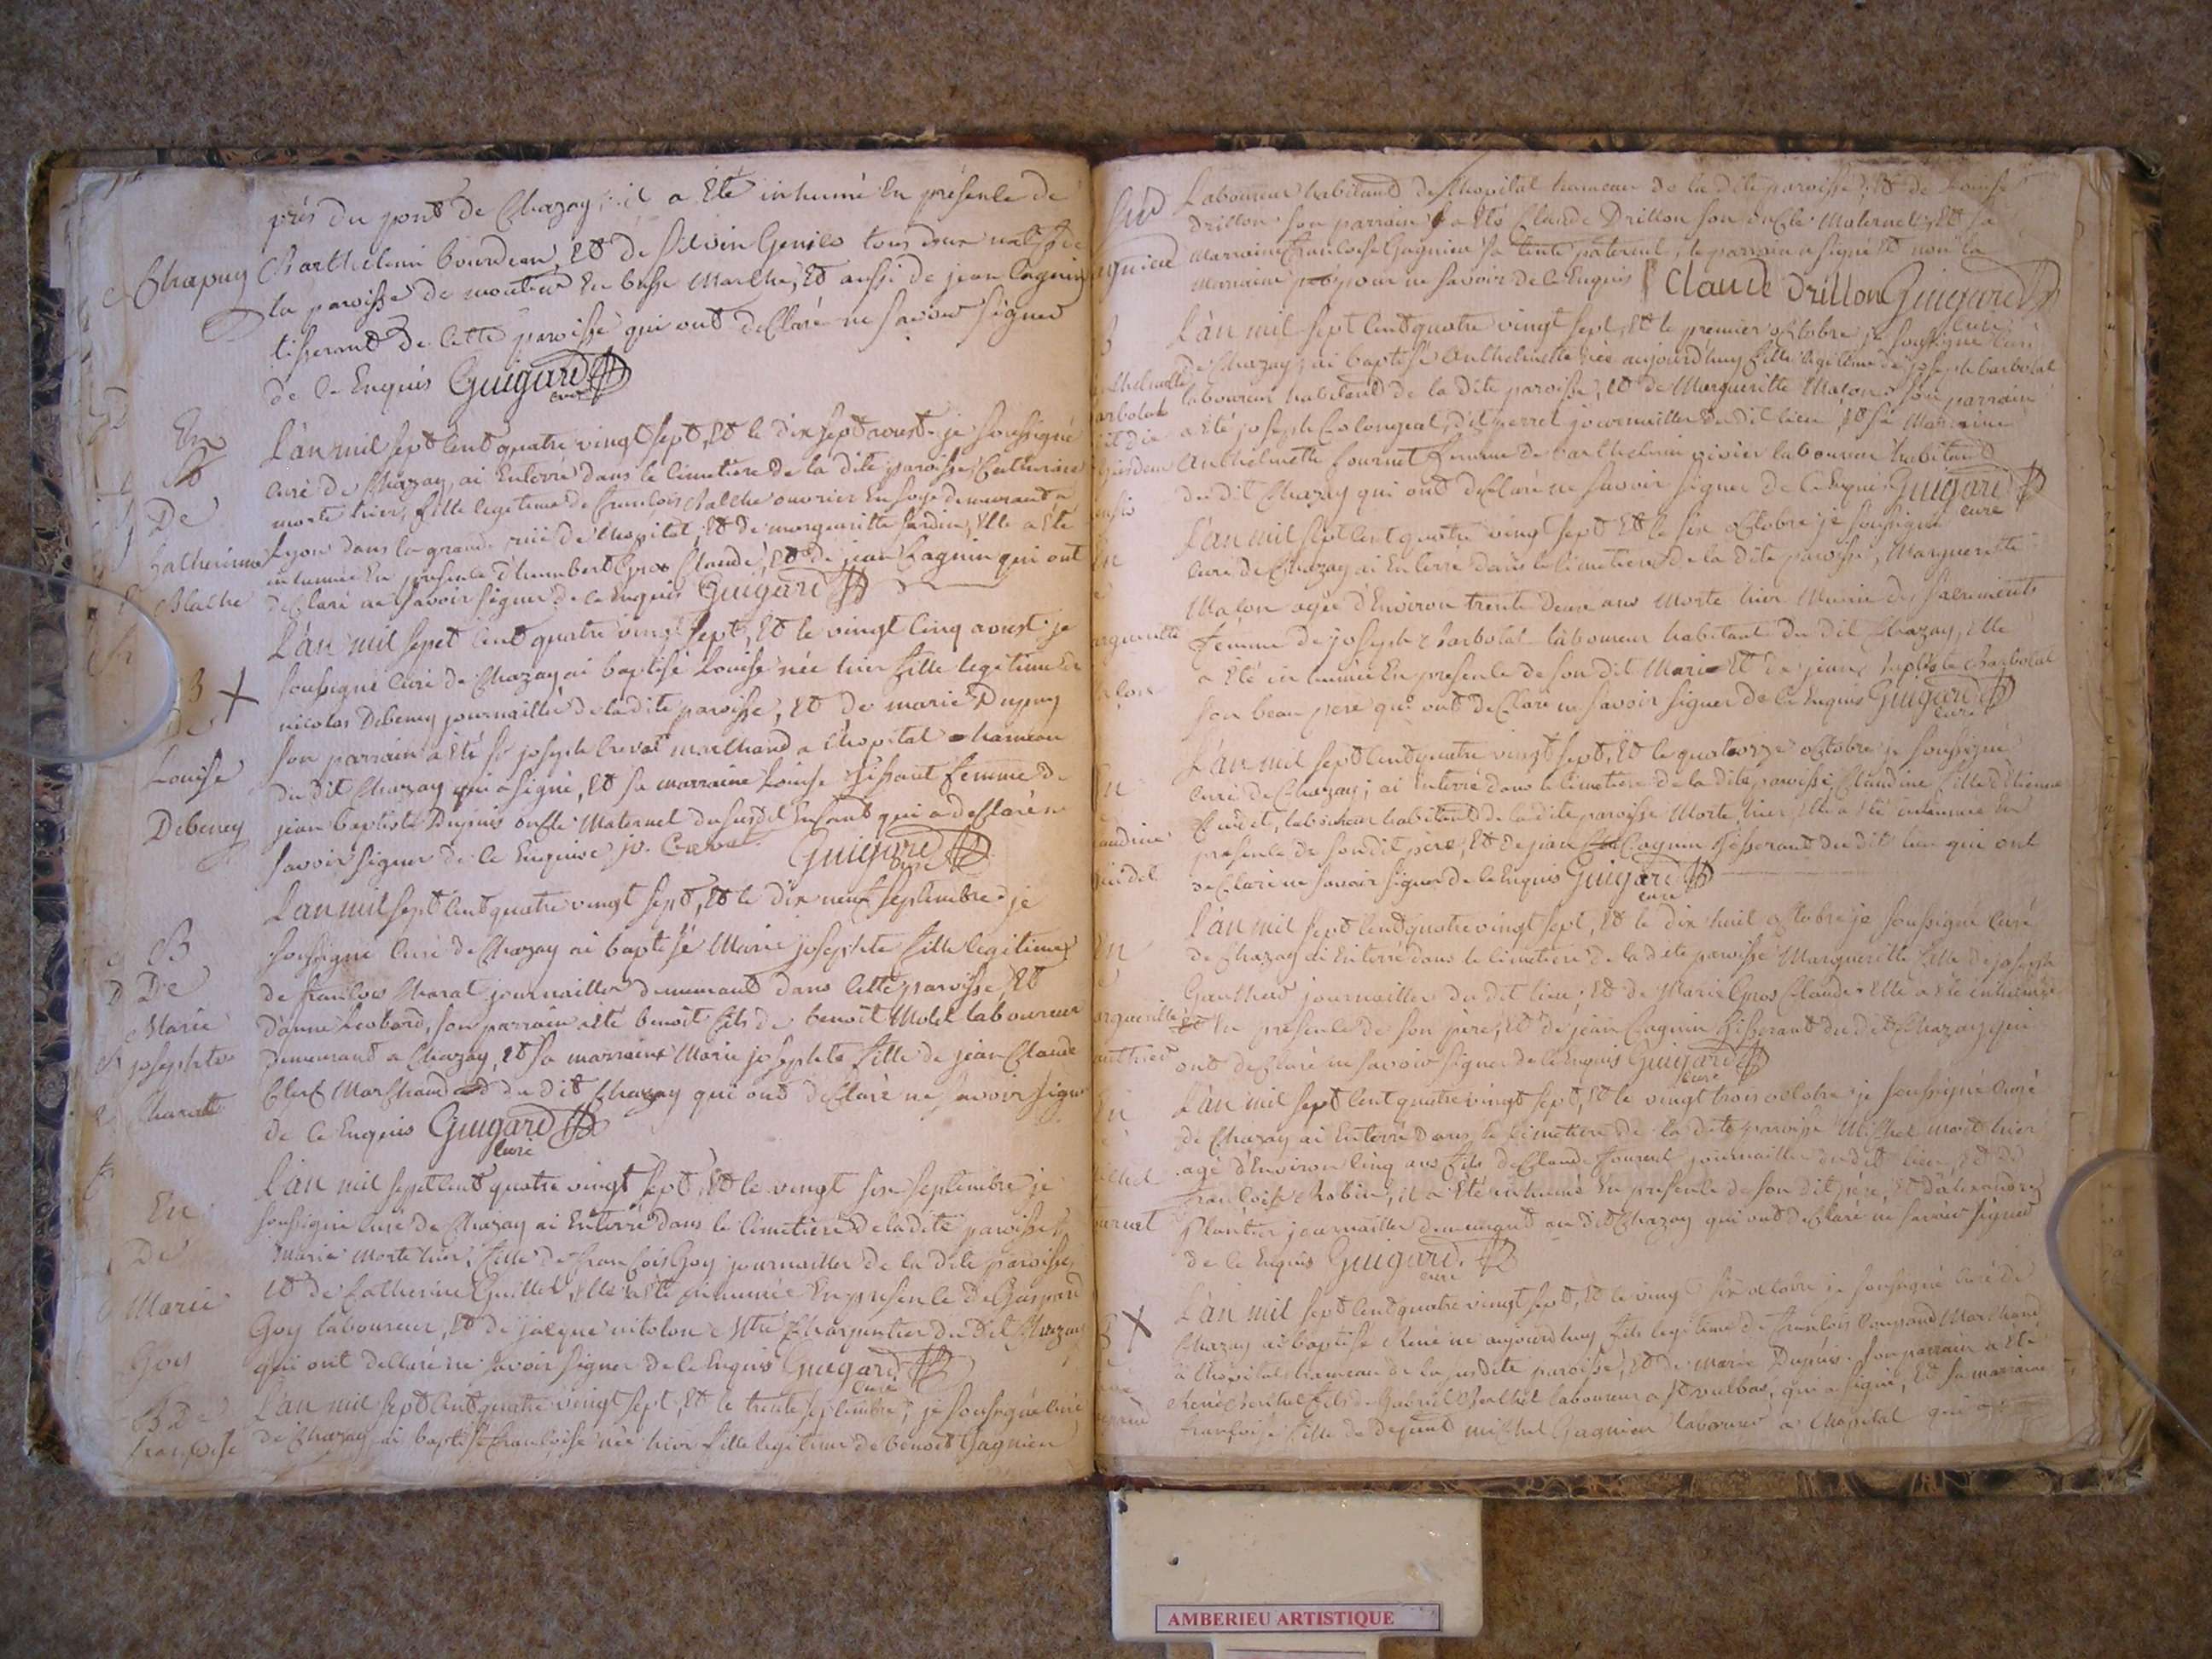 près du pont de Chazay, il a Eté inhumé En présence de
Chapuy
Barthelemi bourdeau, Et de Silvin Genilo tous deux natifs de
la paroisse de en basse Marche, Et aussi de jean Cagnin
tisserand de cette paroisse qui ont declaré ne savoir signer
de ce Enquis Guigard
curé
En
De
Catherine
Blache
L'an mil sept cent quatre vingt sept, Et le dix sept aoust je soussigné
curé de Chazay, ai Enterré dans le cimetiere de la dite paroisse Catherine
morte hier, fille legitime de francois Blache ouvrier En soye demeurant a
Lyon dans la grande rüe de l'hopital, Et de margueritte Jardin, Elle a Eté
inhumée En presence d'humbert Gros Claude, Et de jean Cagnin qui ont
declaré ne savoir signer de ce Enquis Guigard
B
De
Louise
Debeney
L'an mil sept cent quatre vingt sept, Et le vingt cinq aoust je
soussigné curé de Chazay ai baptisé Louise née hier fille legitime de
nicolas Debeney journaillier de la dite paroisse, Et de marie Dupuy
son parrain a Eté sr joseph Cravat marchand a l'hopital hameau
du dit Chazay qui a signé, Et sa marraine Louise femme de
jean baptiste Dupuis oncle Maternel du susdit Enfant qui a declaré ne
savoir signer de ce Enquise jo. Cravat Guigard
curé
B
De
Marie
josephte
Charat
L'an mil sept cent quatre vingt sept, Et le dix neuf septembre je
soussigné curé de Chazay ai baptisé Marie josephte fille legitime
de francois Charat journaillier demeurant dans cette paroisse Et
d'anne Leobard, son parrain a Eté benoit fils de benoit Molet laboureur
demeurant a Chazay, Et sa marraine Marie josephte fille de jean Claude
Clerc Marchand du dit Chazay qui ont declaré ne savoir signer
de ce Enquis Guigard
curé
En
De
Marie
Goy
L'an mil sept cent quatre vingt sept, Et le vingt six septembre je
soussigné curé de Chazay ai Enterré dans le cimetiere de la dite paroisse
Marie morte hier, fille de francois Goy journaillier de la dite paroisse,
Et de Catherine Guillet, Elle a Eté inhumée En presence de Gaspard
Goy laboureur, Et de jacque vitolon Mtre Charpentier du dit Chazay
qui ont declaré ne savoir signer de ce Enquis Guigard
curé
B De
francoise
L'an mil sept cent quatre vingt sept, Et le trente septembre, je soussigné curé
de Chazay, ai baptisé francoise née hier fille legitime de benoit Gagnieu
Laboureur habitand de l'hopital hameau de la dite paroisse, Et de Louise
Drillon son parrain a Eté Claude Drillon son oncle Maternel, Et sa
marraine francoise Gagnieu sa tente paternel, le parrain a signé Et non la
marraine pour ne savoir de ce Enquis Claude Drillon Guigard
curé
L'an mil sept cent quatre vingt sept, Et le premier octobre je soussigné curé
de Chazay, ai baptisé Anthelmette née aujourd'huy fille legitime de joseph barbolat
laboureur habitand de la dite paroisse, Et de Marguerite Maçon, son parrain
a Eté joseph Colongeat, dit perret journaillier du dit lieu, Et sa Marraine
Anthelmette fournet femme de barthelemi vivier laboureur habitand
du dit Chazay qui ont declaré ne savoir signer de ce Enquis Guigard
curé
L'an mil sept cent quatre vingt sept Et le six octobre je soussigné
curé de Chazay ai Enterré dans le cimetiere de la dite paroisse, Marguerette
Maçon agée d'Environ trente deux ans Morte hier Munie des sacrements
femme de joseph Barbolat laboureur habitant du dit Chazay, Elle
a Eté inhumée En presence de son dit Mari Et de jean baptiste Barbolat
son beau pere qui ont declaré ne savoir signer de ce Enquis Guigard
curé
L'an mil sept cent quatre vingt sept, Et le quatorze octobre je soussigné
curé de Chazay, ai Enterré dans le cimetiere de la dite paroisse Claudine fille d'Etienne
laboureur habitand de la dite paroisse Morte hier, Elle a Eté inhumée En
presence de son dit pere, Et de jean Cagnin tisserand du dit lieu qui ont
declaré ne savoir signer de ce Enquis Guigard
curé
L'an mil sept cent quatre vingt sept, Et le dix huit octobre je soussigné curé
de Chazay ai Enterré dans le cimetiere de la dite paroisse Marguerite fille de joseph
Gauthier journaillier du dit lieu, Et de Marie Gros Claude, Elle a Eté inhumée
En presence de son pere, Et de jean Cagnin tisserand du dit Chazay qui
ont declaré ne savoir signer de ce Enquis Guigard
curé
L'an mil sept cent quatre vingt sept, Et le vingt trois octobre je soussigné curé
de Chazay ai Enterré dans le cimetiere de la dite paroisse Michel mort hier
agé d'Environ cinq ans fils de Claude fournet journaillier du dit lieu, Et de
francoise Robin, il a Eté inhumé En presence de son dit pere, Et d'alexandre
Plantier journaillier demeurant au dit Chazay qui ont declaré ne savoir signer
de ce Enquis Guigard
curé
L'an mil sept cent quatre vingt sept, Et le vingt six octobre je soussigné curé de
Chazay ai baptisé René né aujourd'huy fils legitime de francois Marchand
à l'hopital hameau de la susdite paroisse, Et de marie Dupuis. son parrain a Eté
René Berthet fils de Gabriel Berthet laboureur a St vulbas, qui a signé, Et sa marraine
francoise fille de defunt michel Gagnieu laboureur a l'hopital qui
AMBERIEU ARTISTIQUE